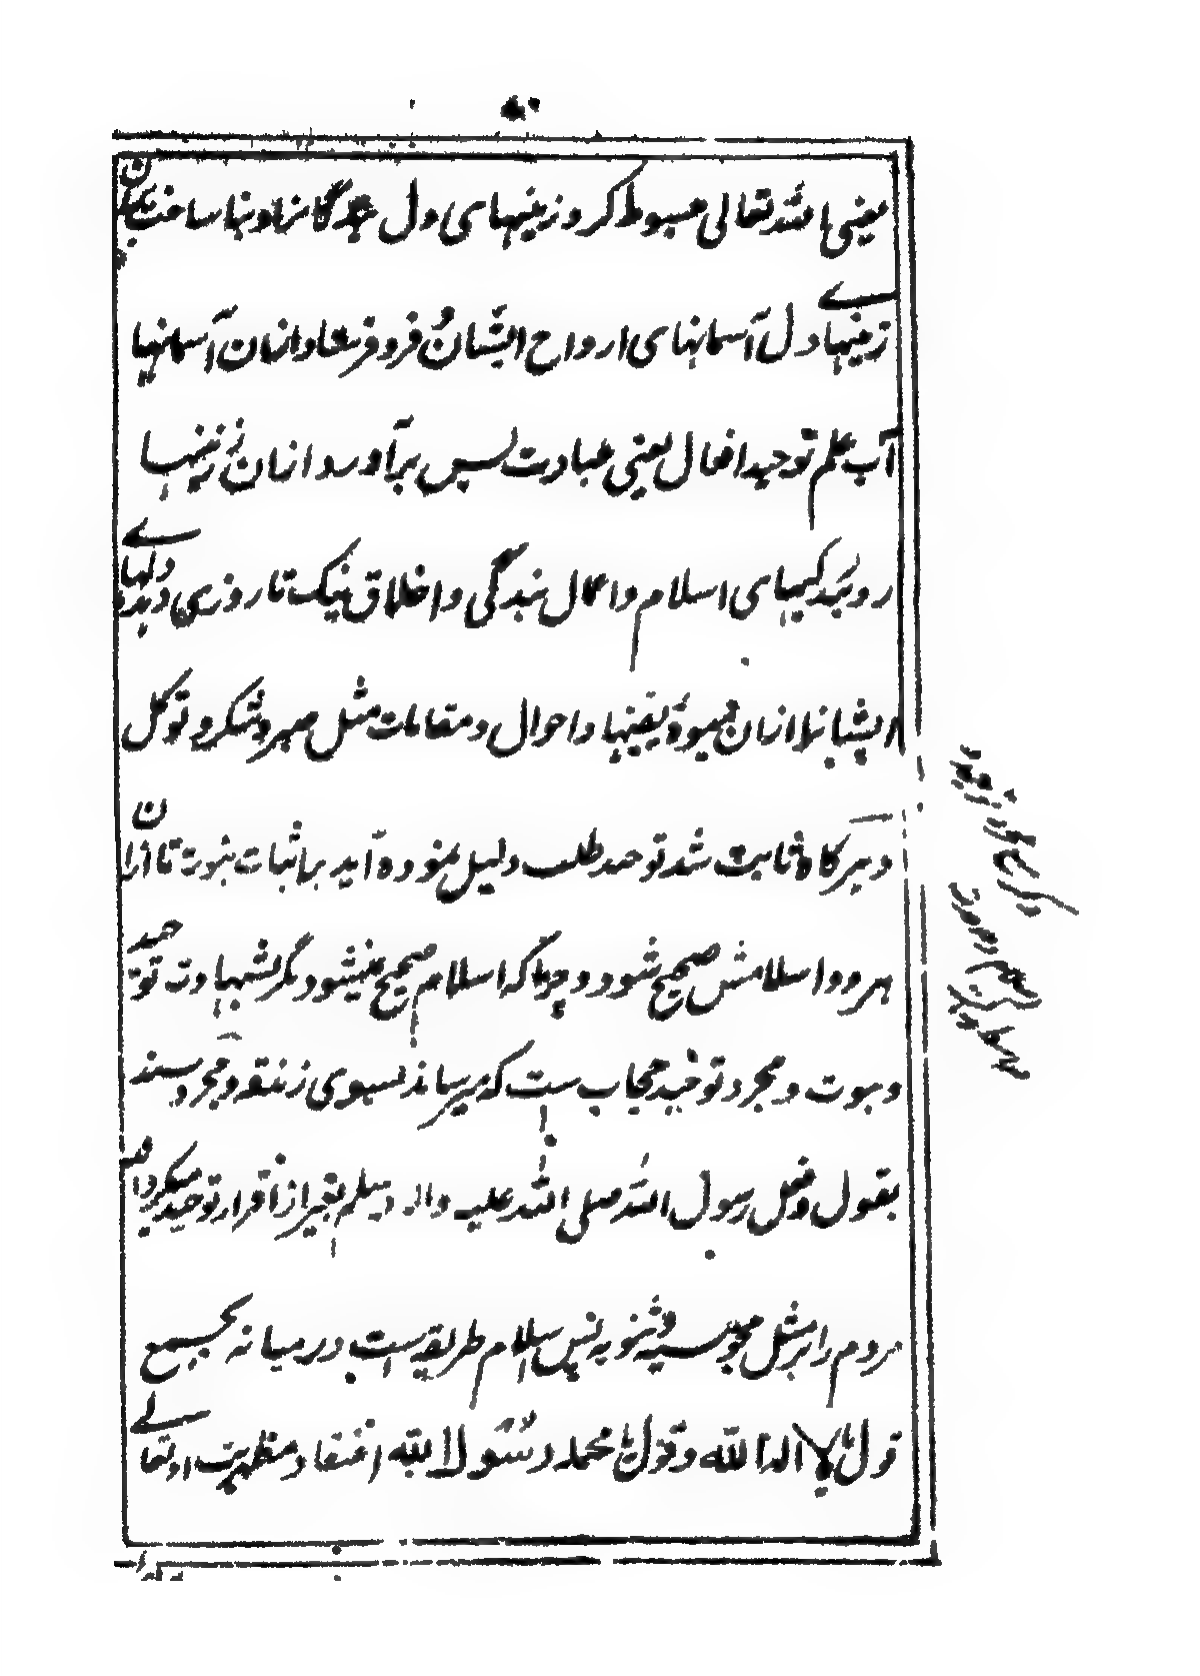 یعنی الله تعالی مبسوط کرد زمینهای دل بندگانرا و بنا ساخت
زمینها دل آسمانهای ارواح ایشان فرو فرستاد ازان آسمانها
آب علم توحید افعال یعنی عبادت پس برآورد ازان زمینها
رویید گیههای اسلام و اعمال بندگی و اخلاق نیک تا روزی دلهای
ایشانرا ازان میوهٔ یقینها و احوال و مقامات مثل صبر و شکر و توکل
و هرگاه ثابت شد توحد طلب دلیل نموده آید براثبات نبوت تا ازان
هر دو اسلامش صحیح شود و چراکه اسلام صحیح نمیشود مگر بشهادت توحید
و نبوت و مجرد توحید حجاب ست که میرساند بسوی زندقه و مجرد سند
بقول و فعل رسول الله صلی الله علیه واله وسلم بغیر از اقرار توحید میگرداند
مردم را بر مثل مجوسیه و ثنویه پس اسلام طریقه ست درمیانه بجمیع
قول لا اله الا الله و قول محمد رسول الله اعتقاد مظهریت او تعالے